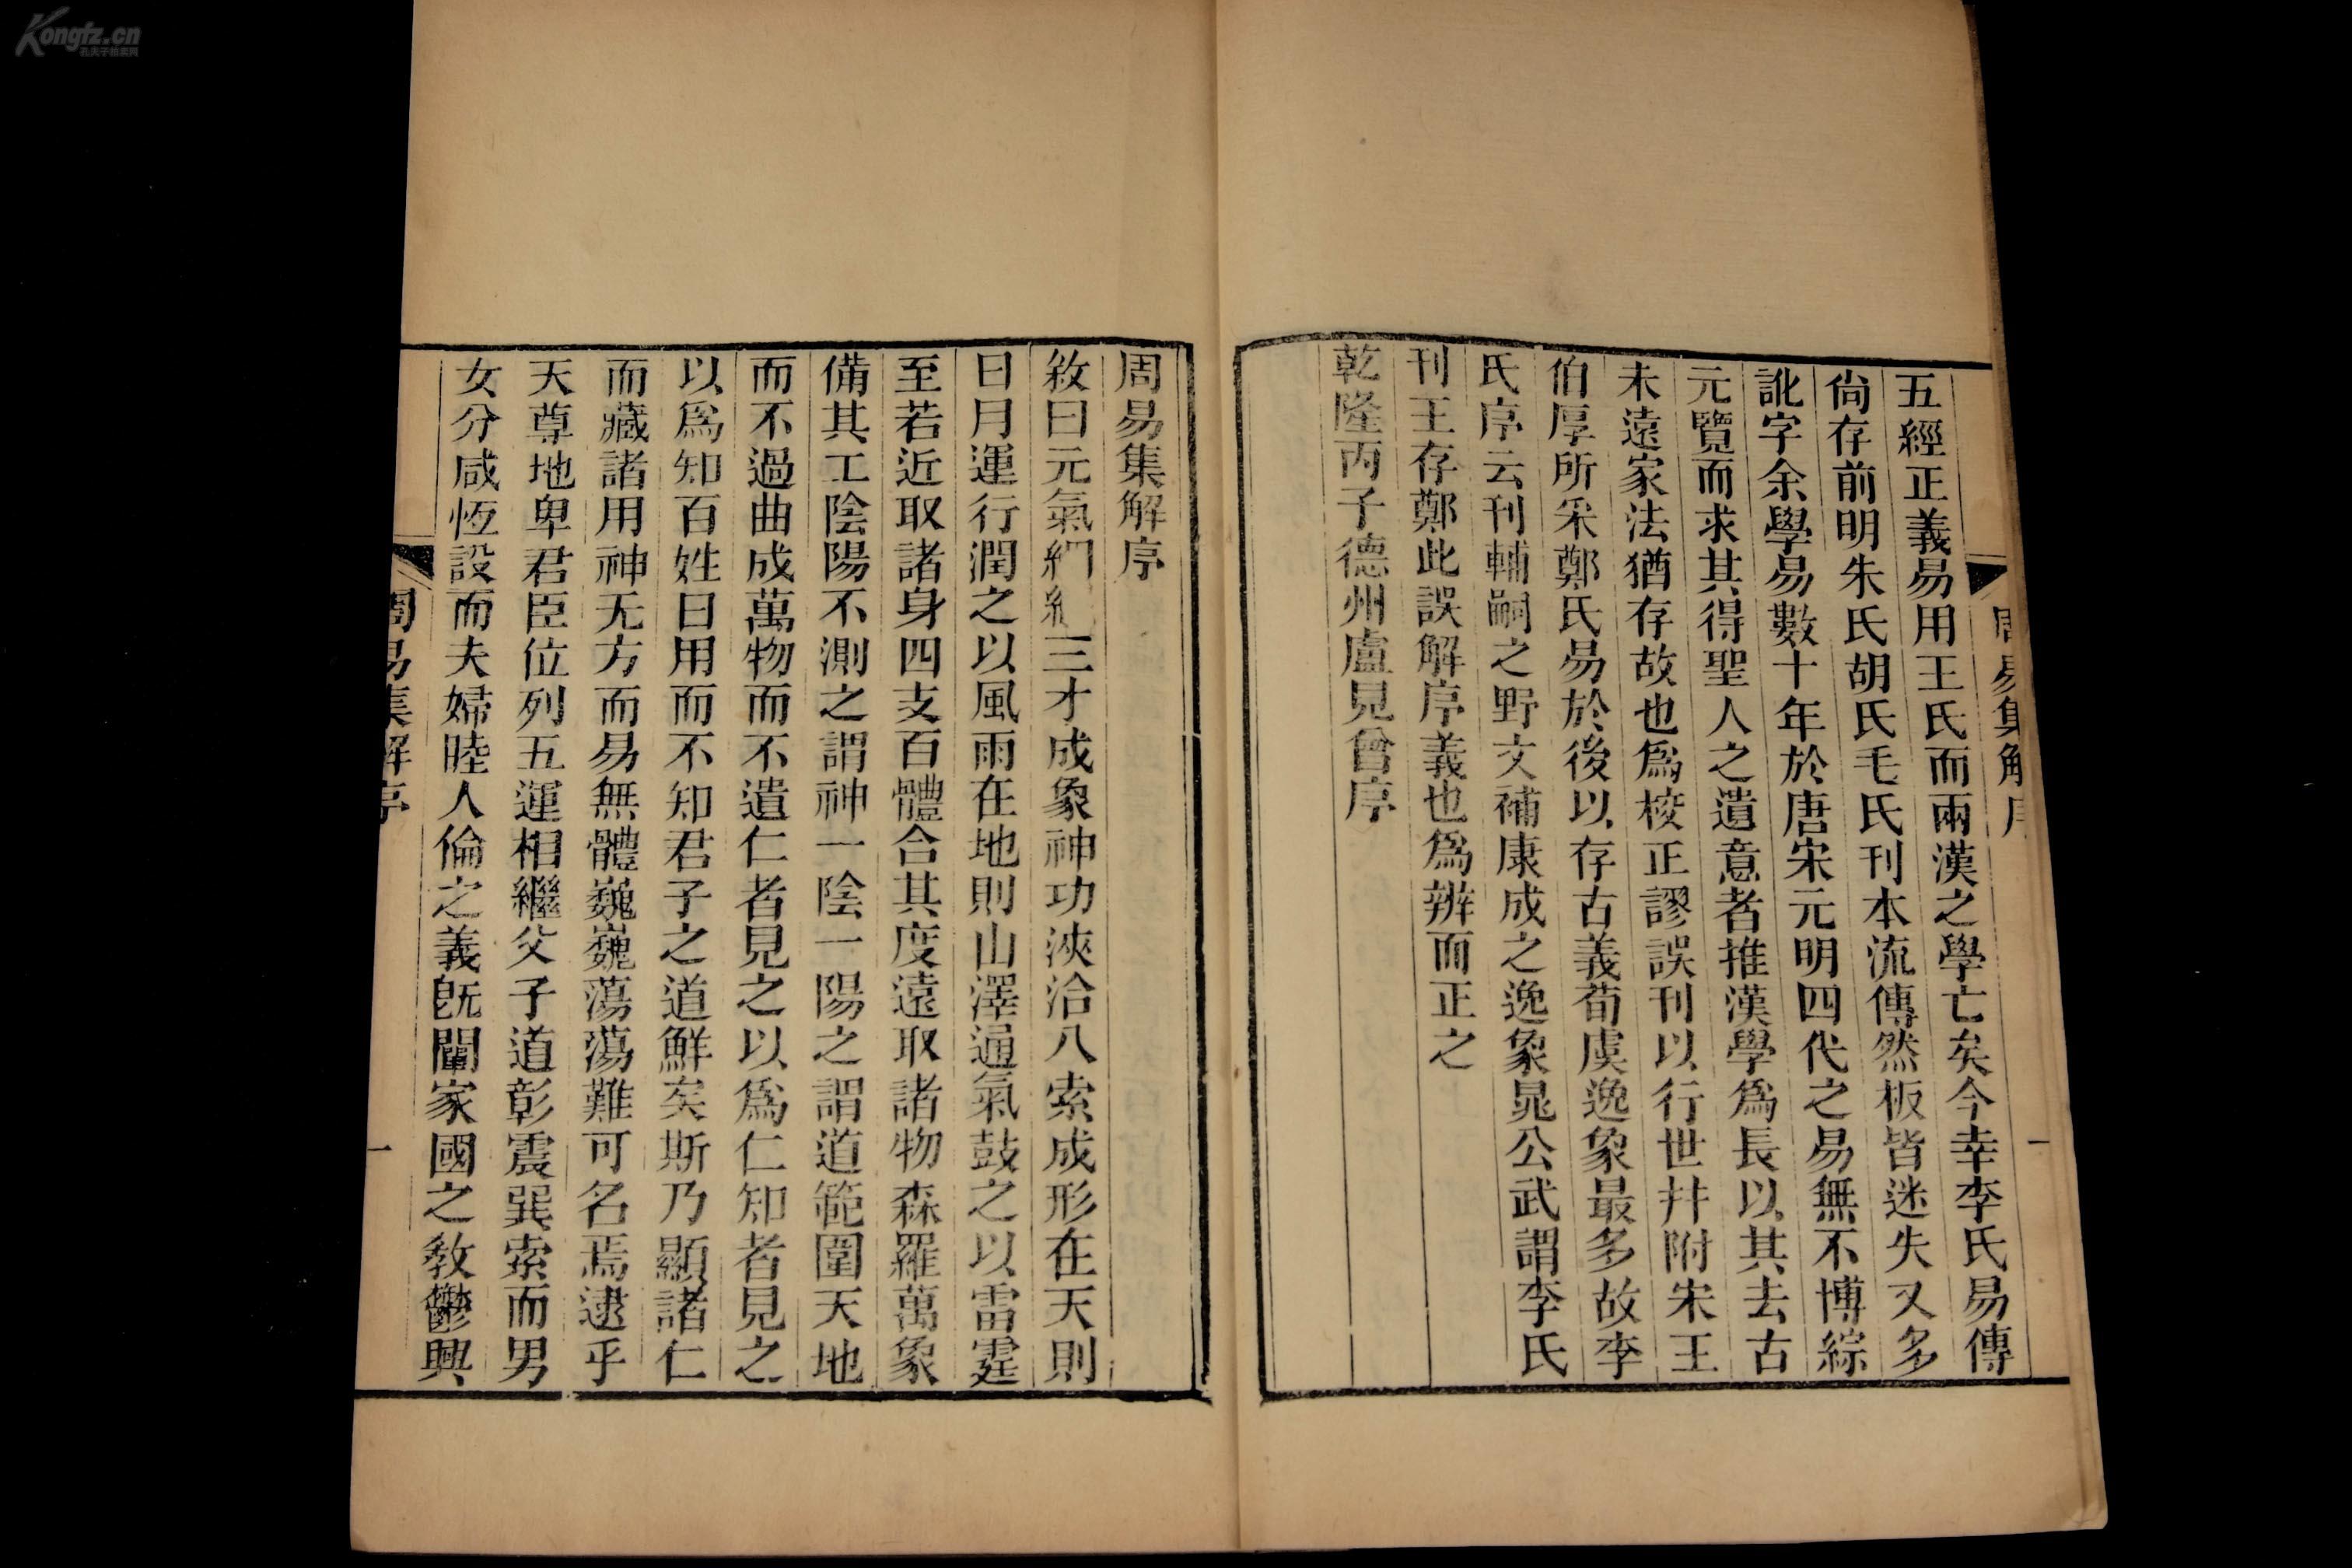 五經正義易用王氏而兩漢之學亡矣今幸李氏易傳
尙存前明朱氏胡氏毛氏刊本流傳然板皆迷失又多
訛字余學易數十年於唐宋元明四代之易無不博綜
元覽而求其得聖人之遺意者推漢學爲長以其去古
未遠家法猶存故也爲校正謬誤刊以行世幷附宋王
伯厚所采鄭氏易於後以存古義荀虞逸象最多故李
氏序云刊輔嗣之野文補康成之逸象晁公武謂李氏
刊王存鄭此誤解序義也爲辨而正之
乾隆丙子德州盧見曾序
周易集解序
一
周易集解序
敘曰元氣絪縕三才成象神功浹洽八索成形在天則
日月運行潤之以風雨在地則山澤通氣鼓之以雷霆
至若近取諸身四支百體合其度遠取諸物森羅萬象
備其工陰陽不測之謂神一陰一陽之謂道範圍天地
而不過曲成萬物而不遺仁者見之以爲仁知者見之
以爲知百姓日用而不知君子之道鮮矣斯乃顯諸仁
而藏諸用神无方而易無體巍巍蕩蕩難可名焉逮乎
天尊地卑君臣位列五運相繼父子道彰震巽索而男
女分咸恆設而夫婦睦人倫之義旣闡家國之敎鬱興
周易集解序
一
Kongfz.cn
孔夫子拍卖网